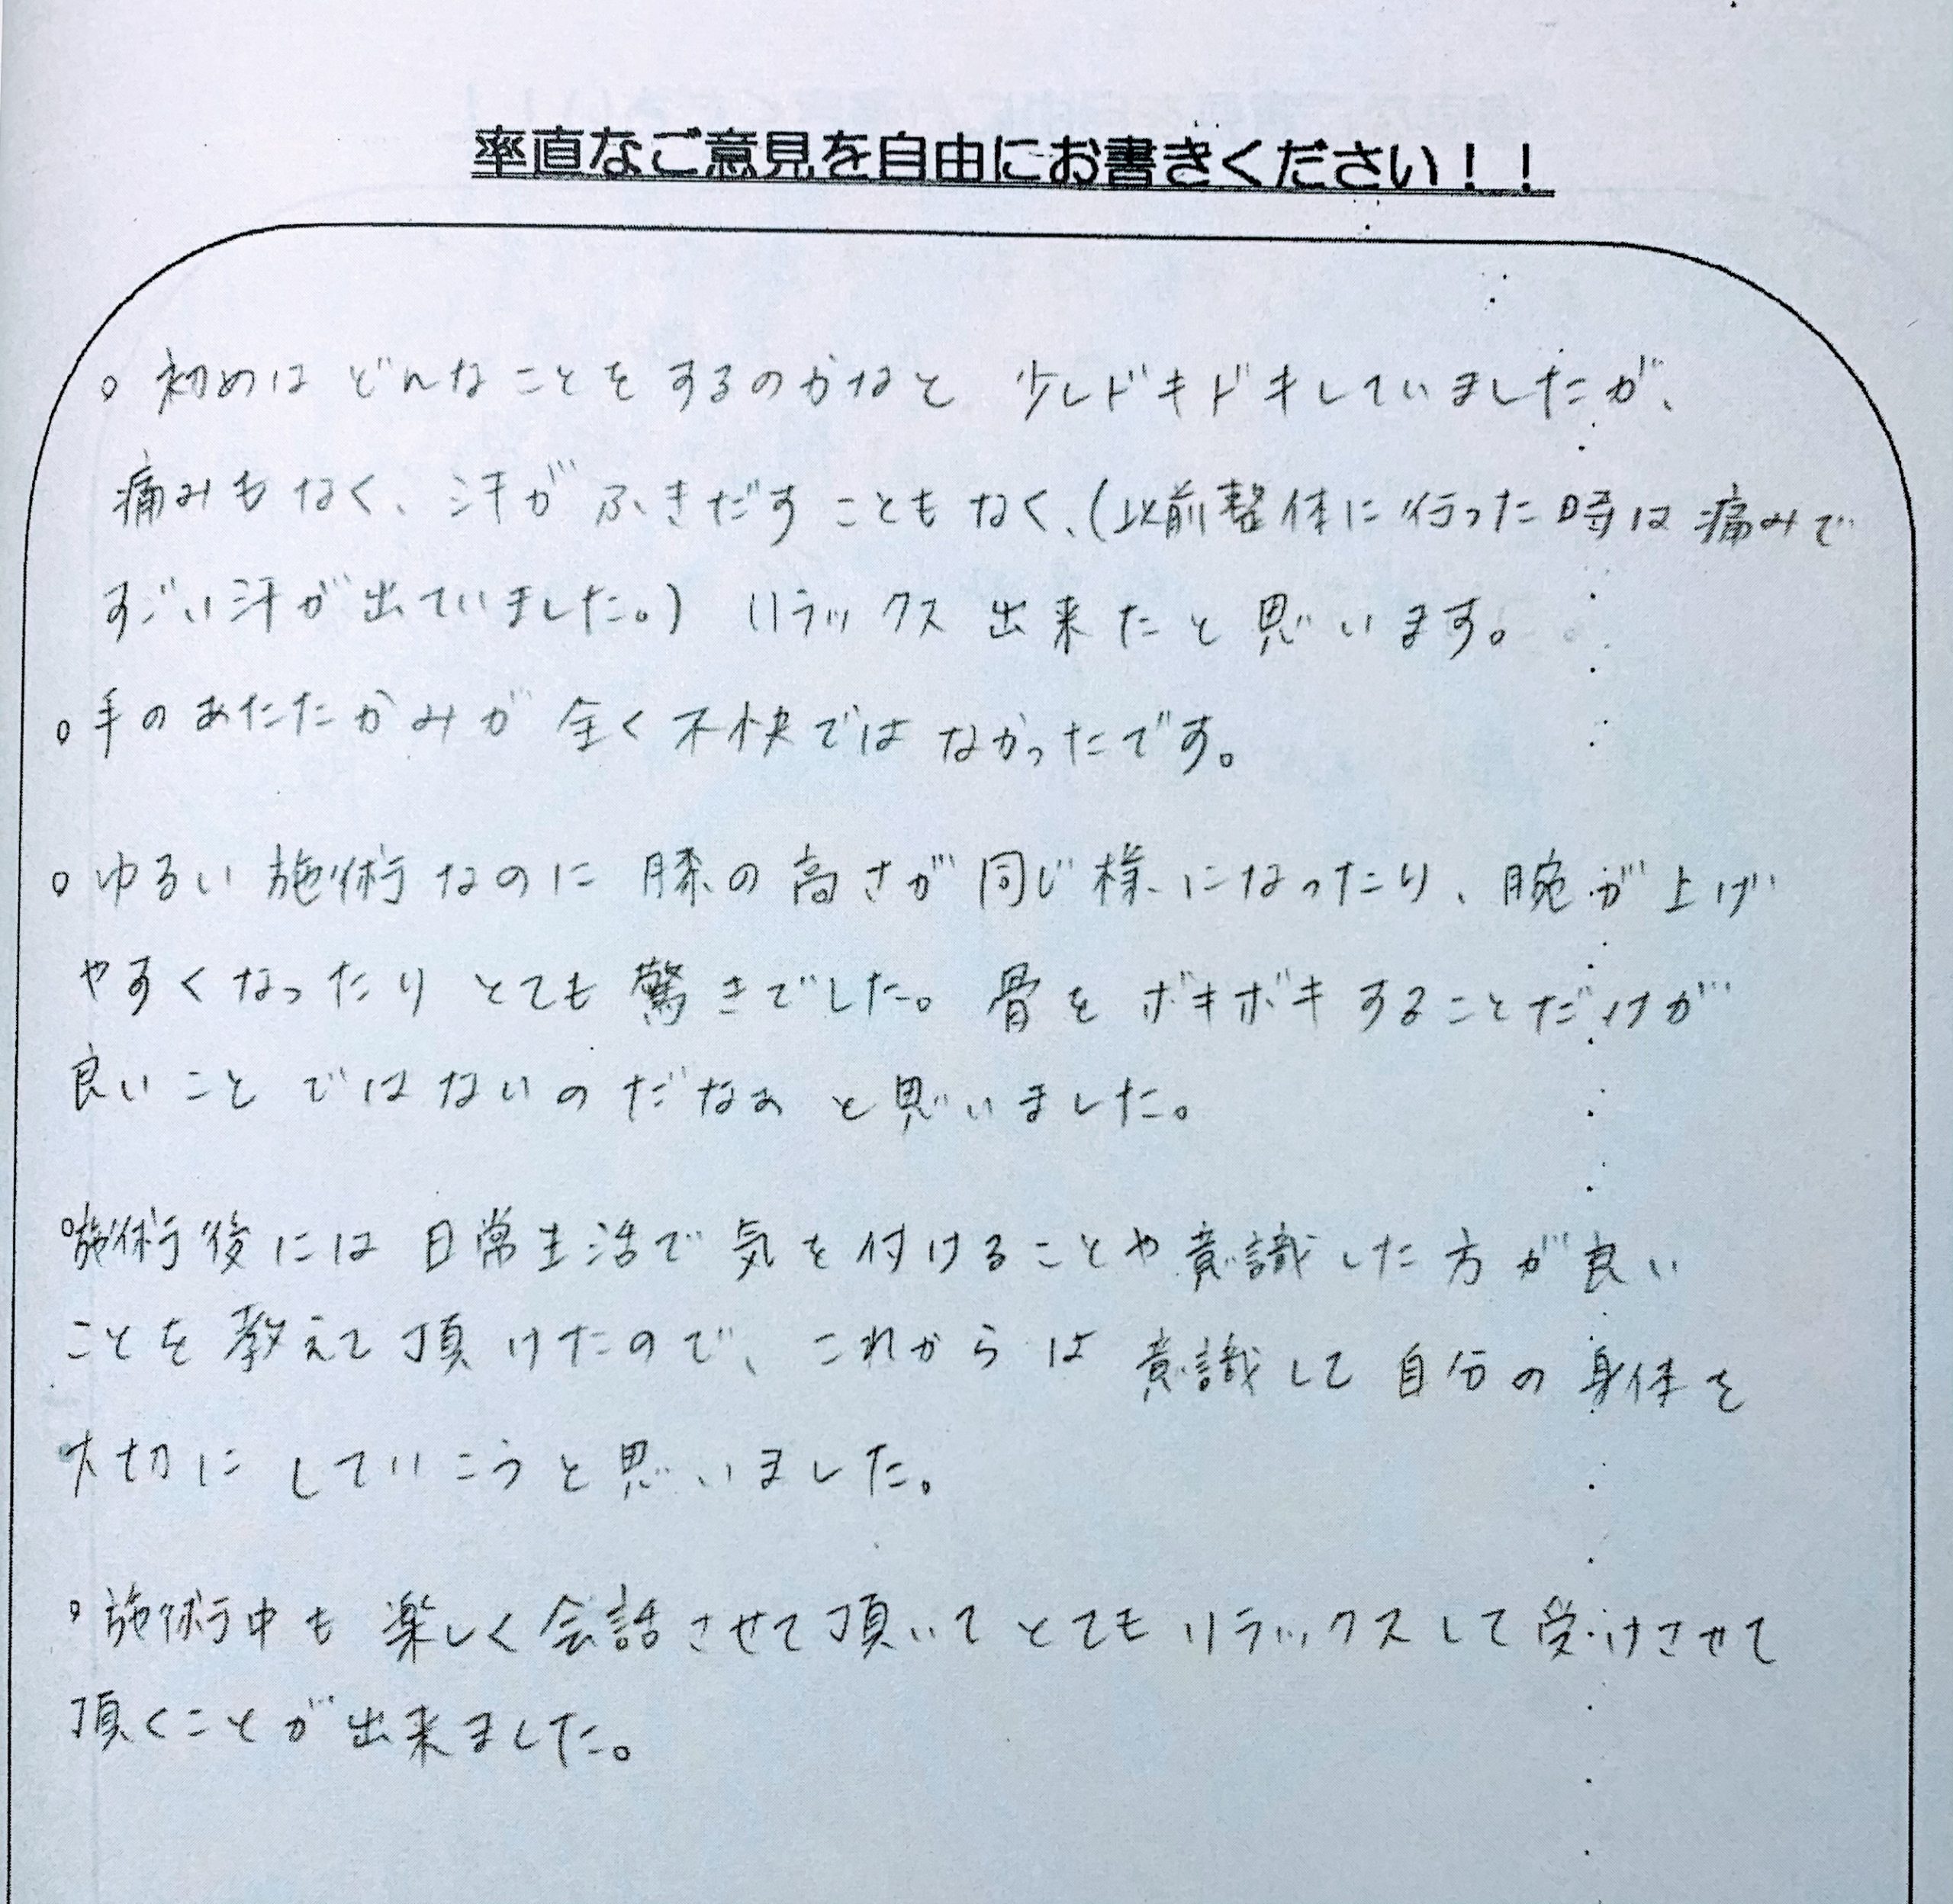 率直なご意見を自由にお書きください！！
○ 初めは どんなことを するのかなと 少しドキドキしていましたが、
痛みも なく、汗が ふきだす ことも なく、(以前整体に行った時は 痛みで
すごい汗が出ていました。) リラックス 出来たと思います。
○ 手のあたたかみが 全く不快では なかったです。
○ ゆるい 施術なのに 膝の高さが同じ様になったり、腕が上げ
やすくなったり とても 驚きでした。骨を ボキボキ することだけが
良いこと ではないの だなぁ と思いました。
○施術後には 日常生活で気を付けることや意識した方が良い
ことを 教えて頂けたので、これからは 意識して自分の身体を
大切に していこうと思いました。
○ 施術中も 楽しく会話させて頂いて とても リラックスして受けさせて
頂くことが出来ました。